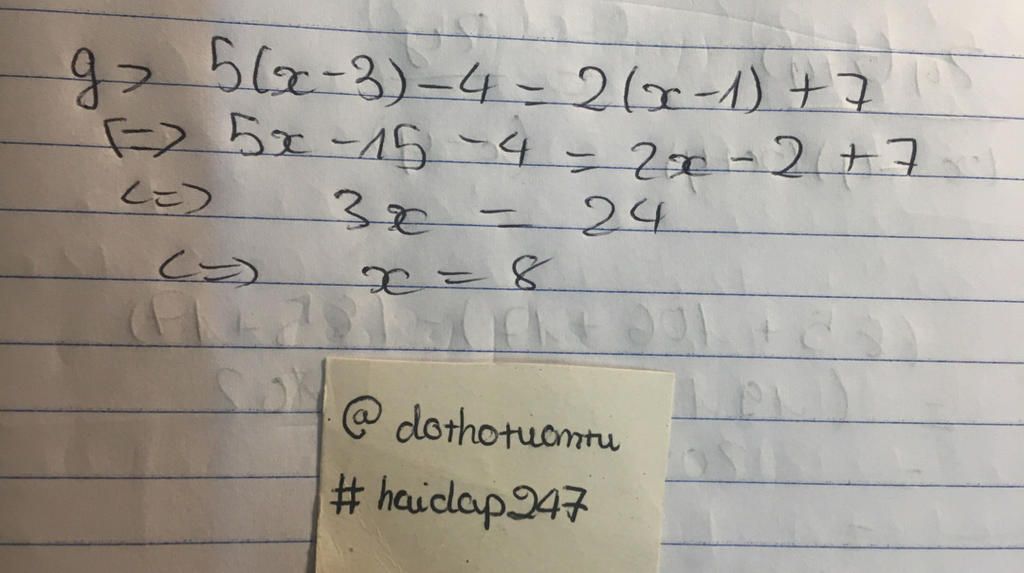 g> 5(x-3)-4=2(x-1)+7
<=> 5x-15-4=2x-2+7
<=> 3x = 24
<=> x = 8
@ dothotuomtu
# haidap247